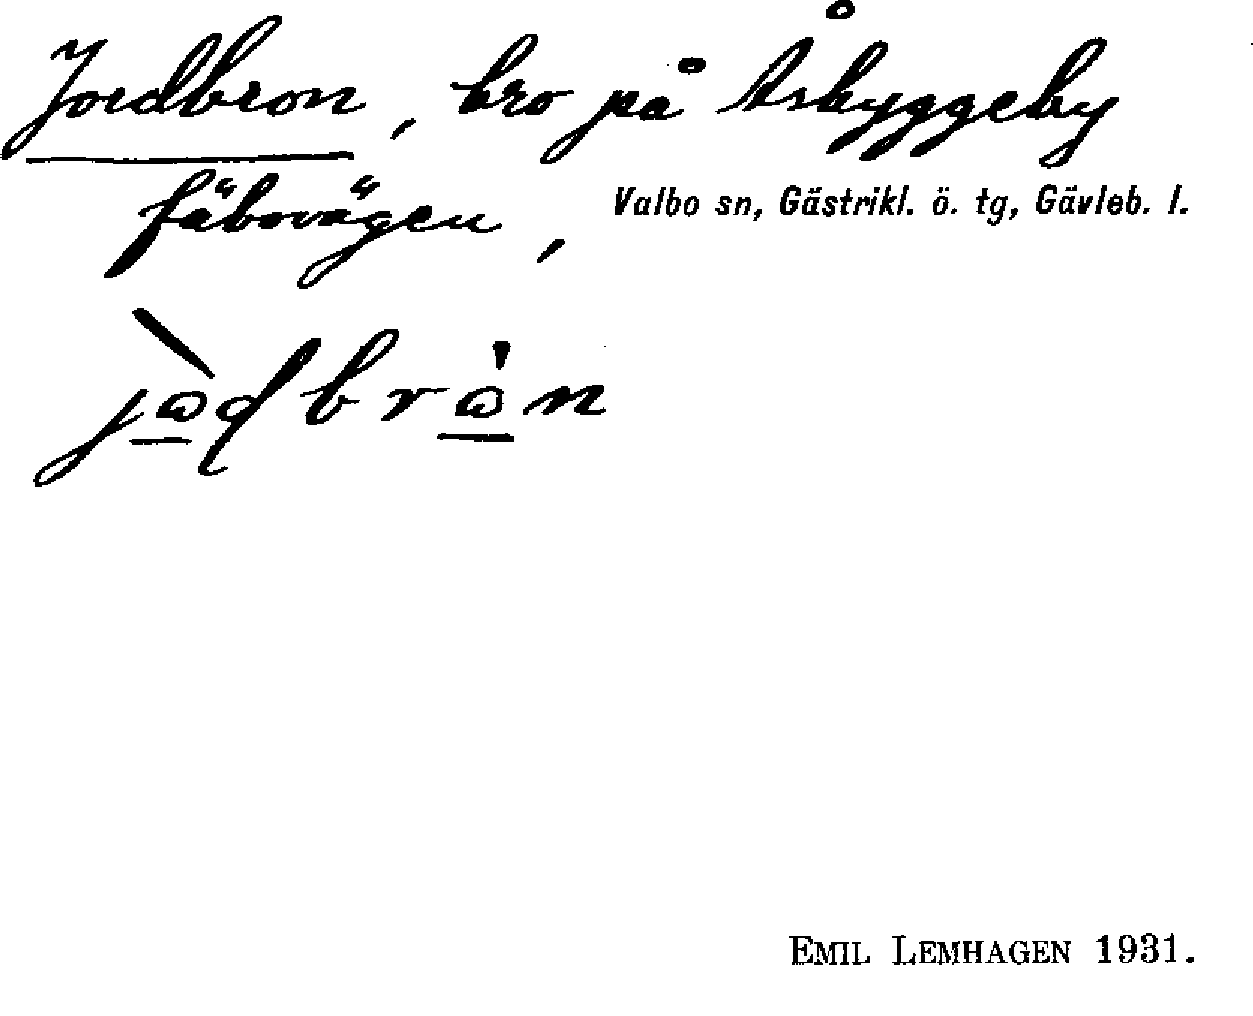 Jordbron, bro på Åsbyggeby
fäbovägen,
Valbo sn, Gästrikl. ö. tg, Gävleb. l.
EMIL LEMHAGEN 1931.